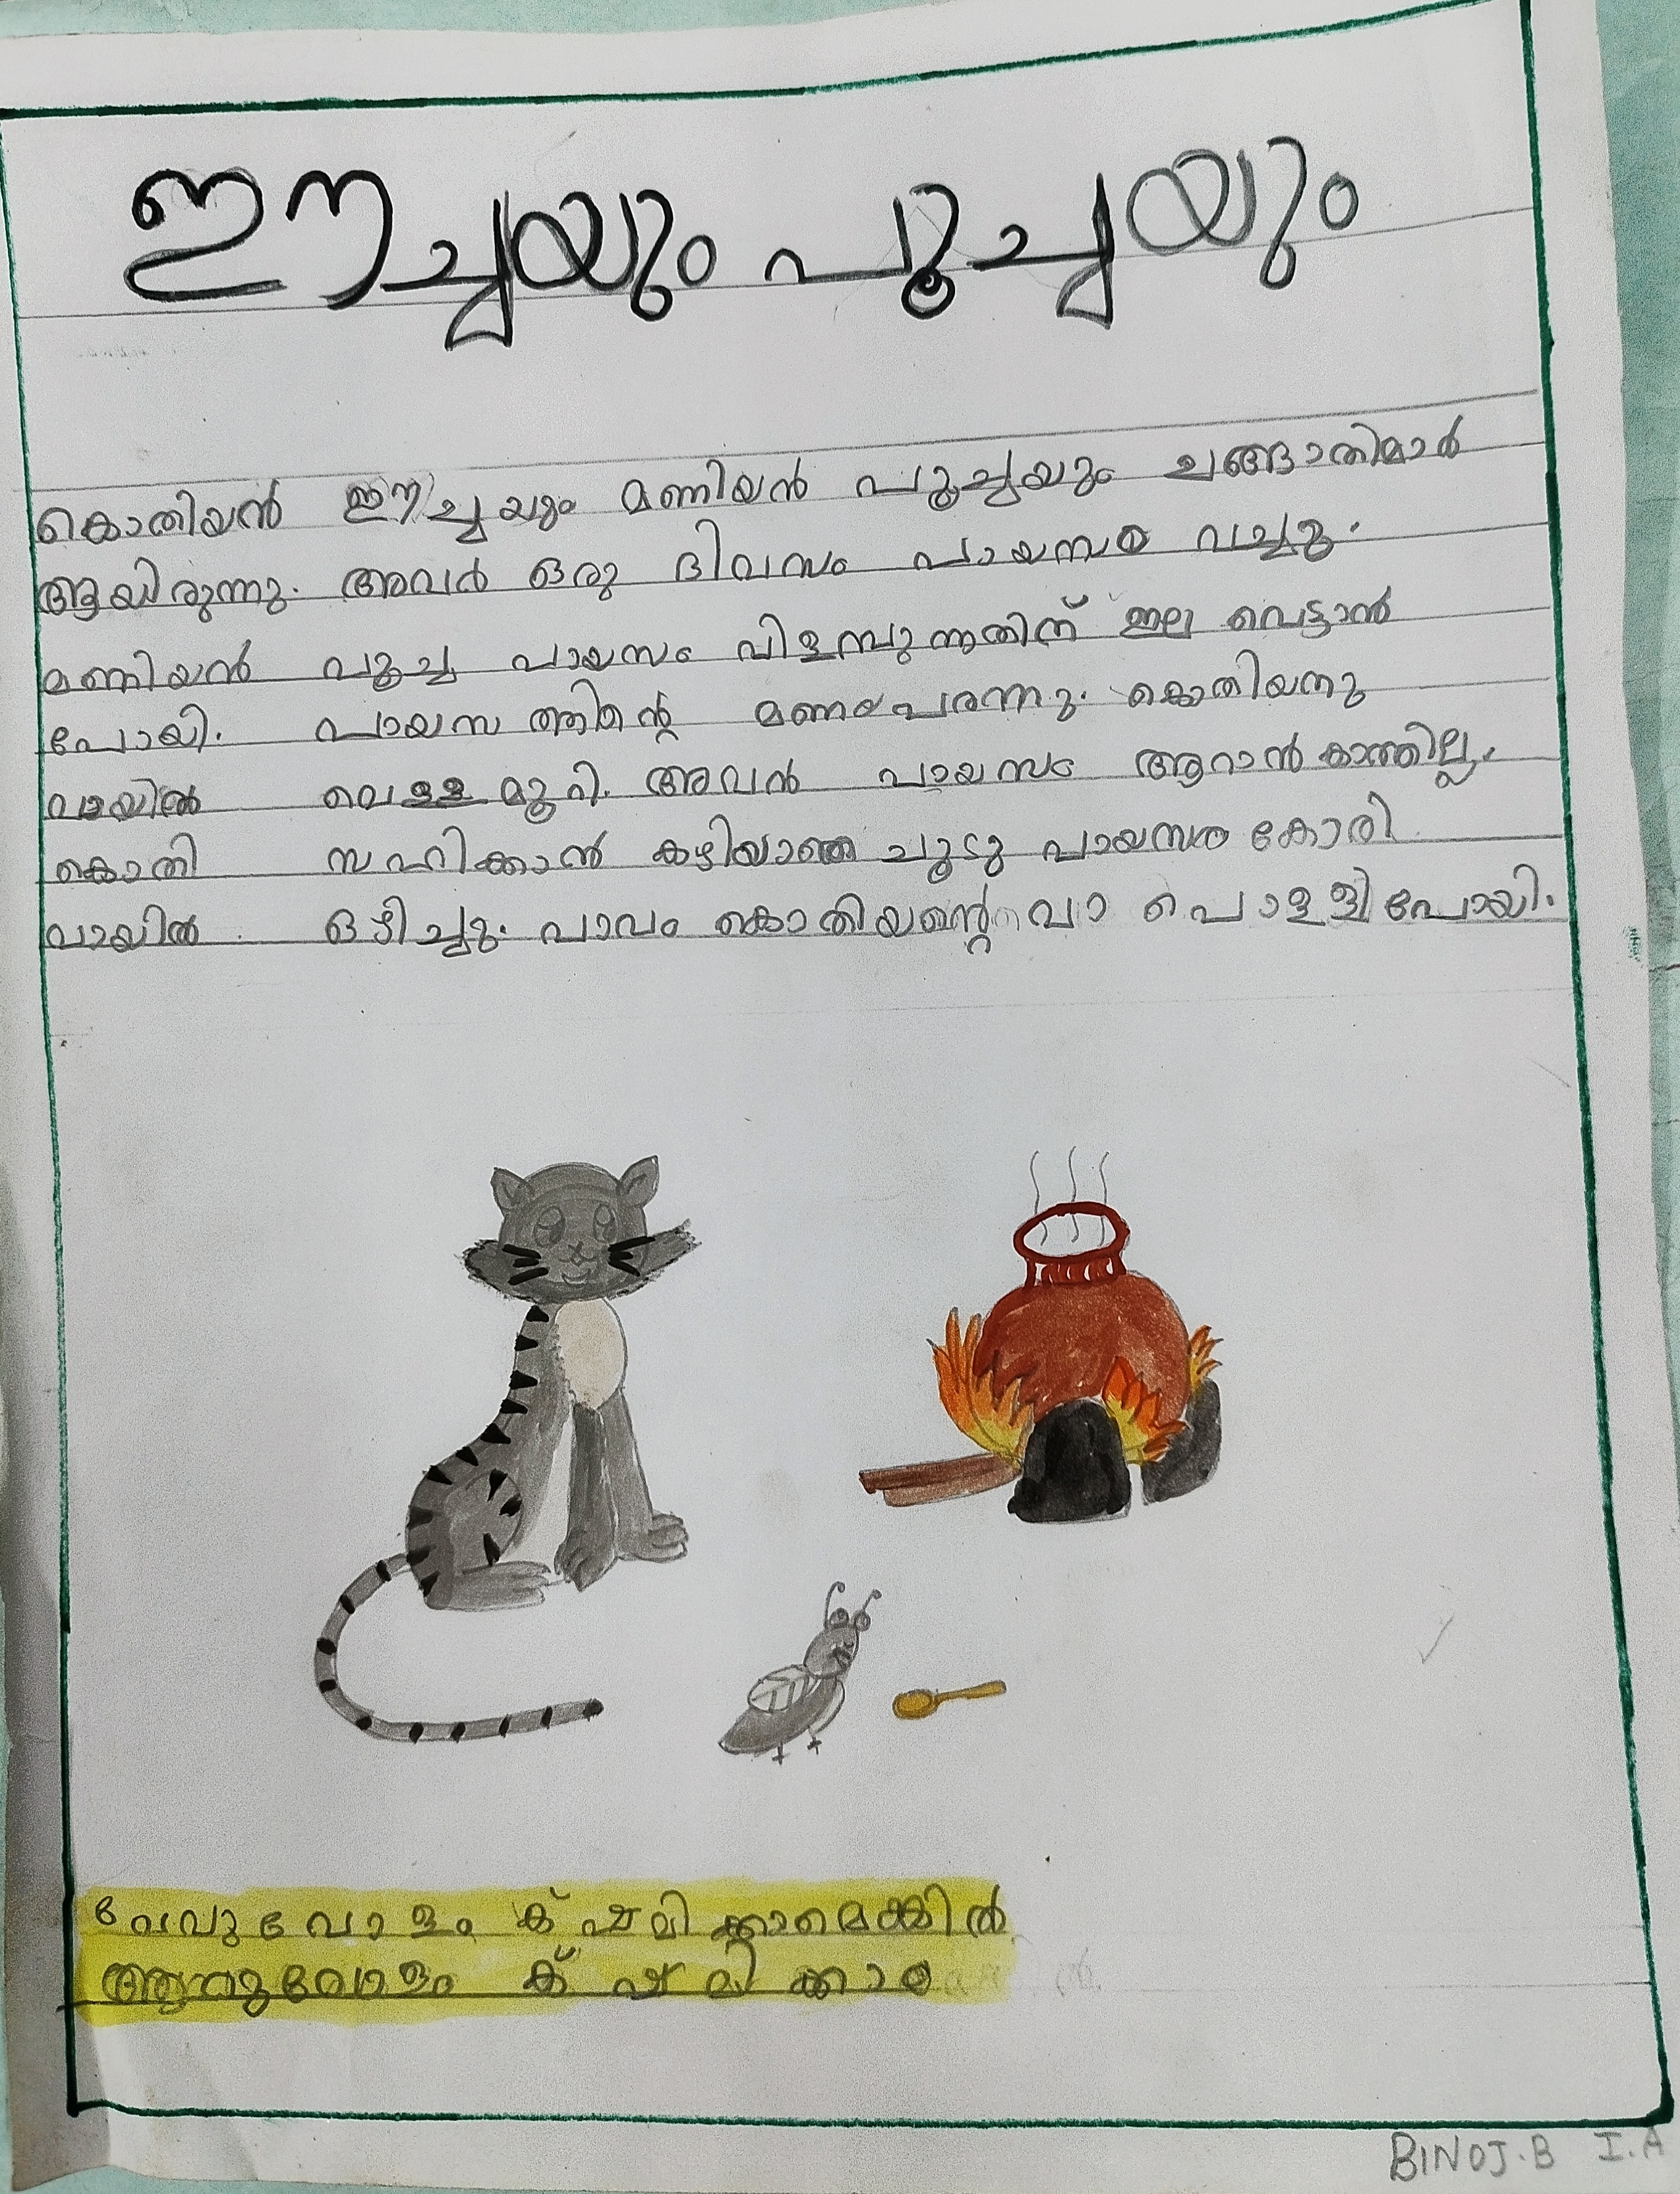 ഈച്ചയും പൂച്ചയും
കൊതിയൻ ഈച്ചയും മണിയൻ പൂച്ചയും ചങ്ങാതിമാർ
ആയിരുന്നു. അവർ ഒരു ദിവസം പായസം വച്ചു.
മണിയൻ പൂച്ച പായസം വിളമ്പുന്നതിന് ഇല വെട്ടാൻ
പോയി. പായസത്തിന്റെ മണം പരന്നു. കൊതിയനു
വായിൽ വെള്ളമൂറി. അവൻ പായസം ആറാൻ കാത്തില്ല.
കൊതി സഹിക്കാൻ കഴിയാഞ്ഞ ചൂടു പായസം കോരി
വായിൽ ഒഴിച്ചു. പാവം കൊതിയന്റെ വാ പൊള്ളിപോയി.
വേവുവോളം ക്ഷമിക്കാമെങ്കിൽ
ആറുവോളം ക്ഷമിക്കാം
BINOJ.B I.A